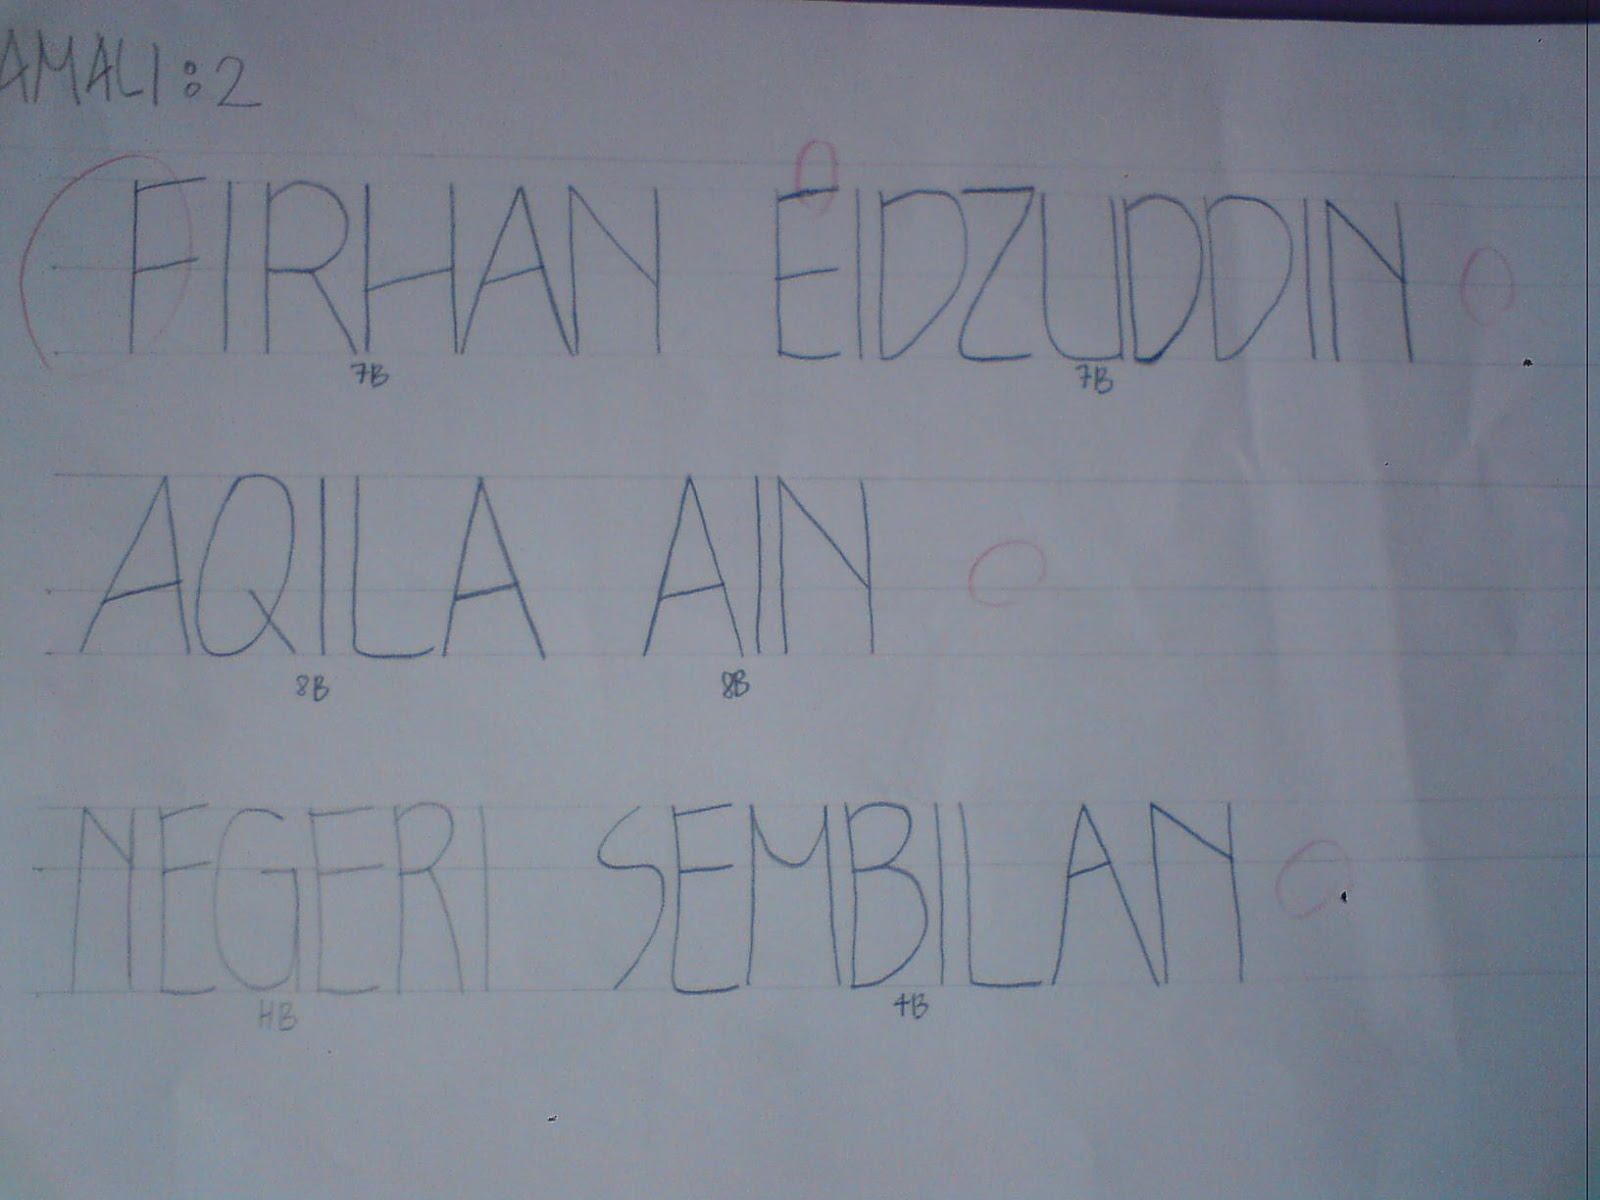 AMALI:2
FIRHAN EIDZUDDIN
7B 7B
AQILA AIN
8B 8B
NEGERI SEMBILAN
HB 4B